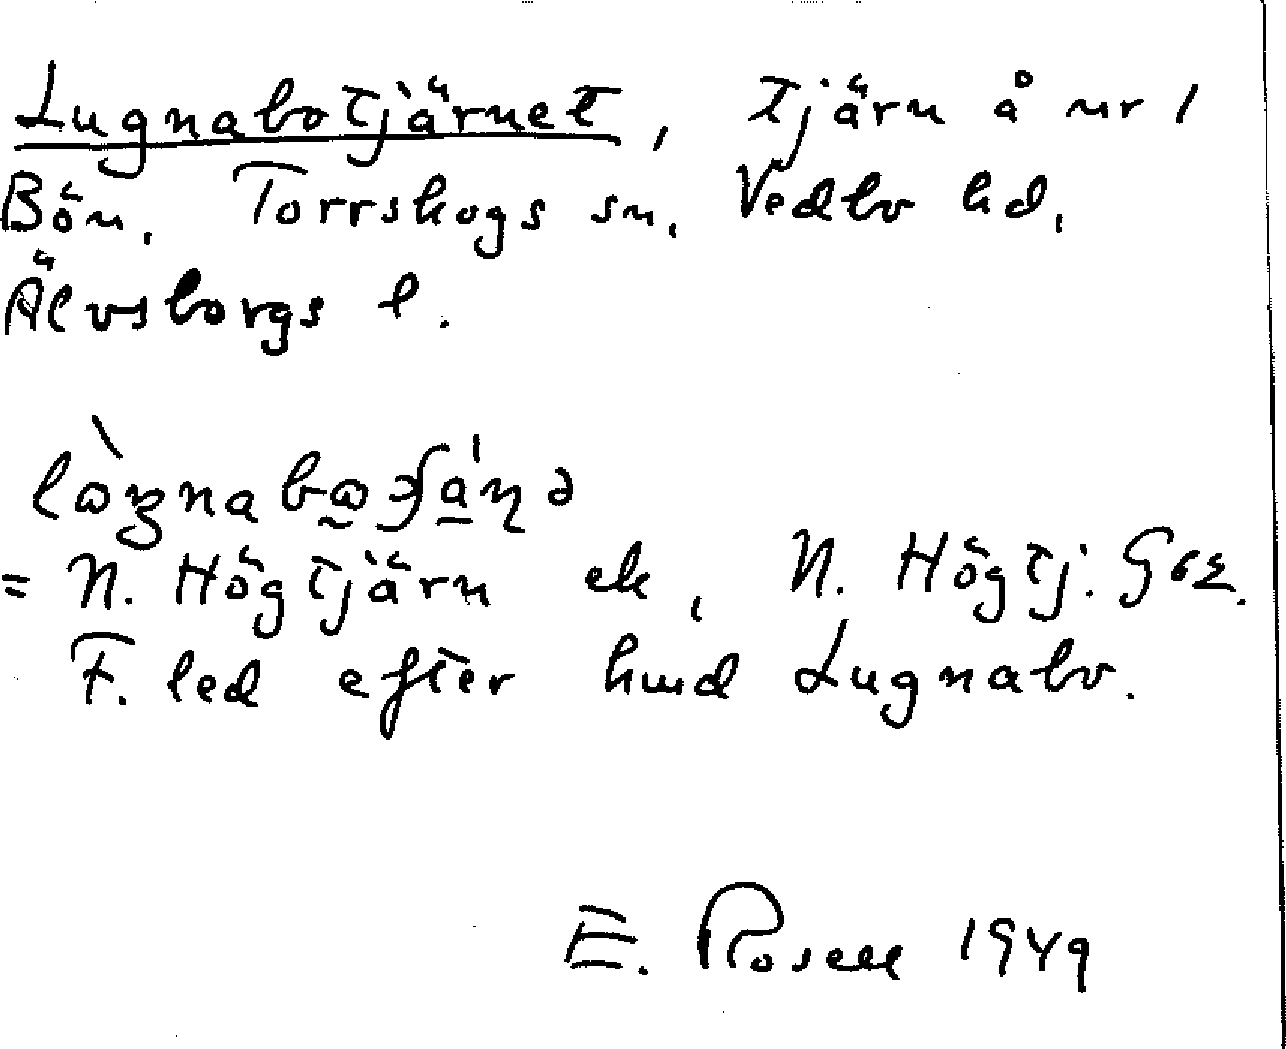 Lugnabotjärnet, tjärn å nr 1
Bön. Torrskogs sn, Vedbo hd,
Älvsborgs l.
= N. Högtjärn ek, N. Högtj. G62.
F. led efter hmd Lugnabo.
E. Rosell 1949